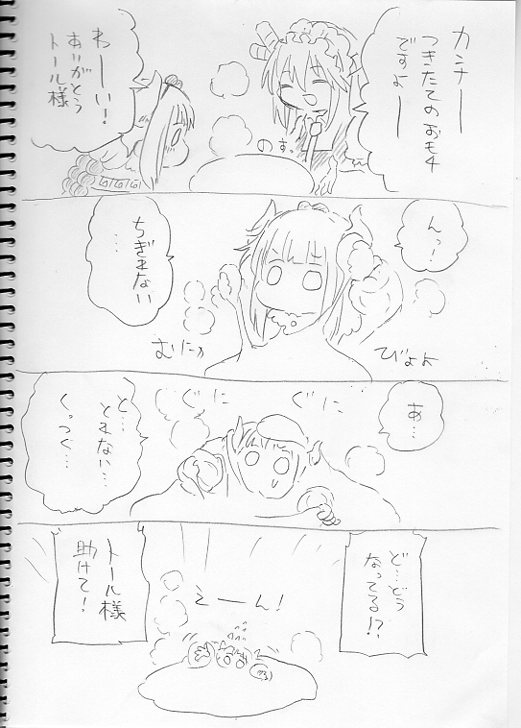 カンナー
つきたてのおモチ
ですよー
わーい！
ありがとう
トール様
のす。
んっ！
ちぎれない
…
びよよ
むにょ
あ…
ぐに
ぐに
と…
とれない…
くっつく…
ど…どう
なってる!?
えーん！
トール様
助けて！